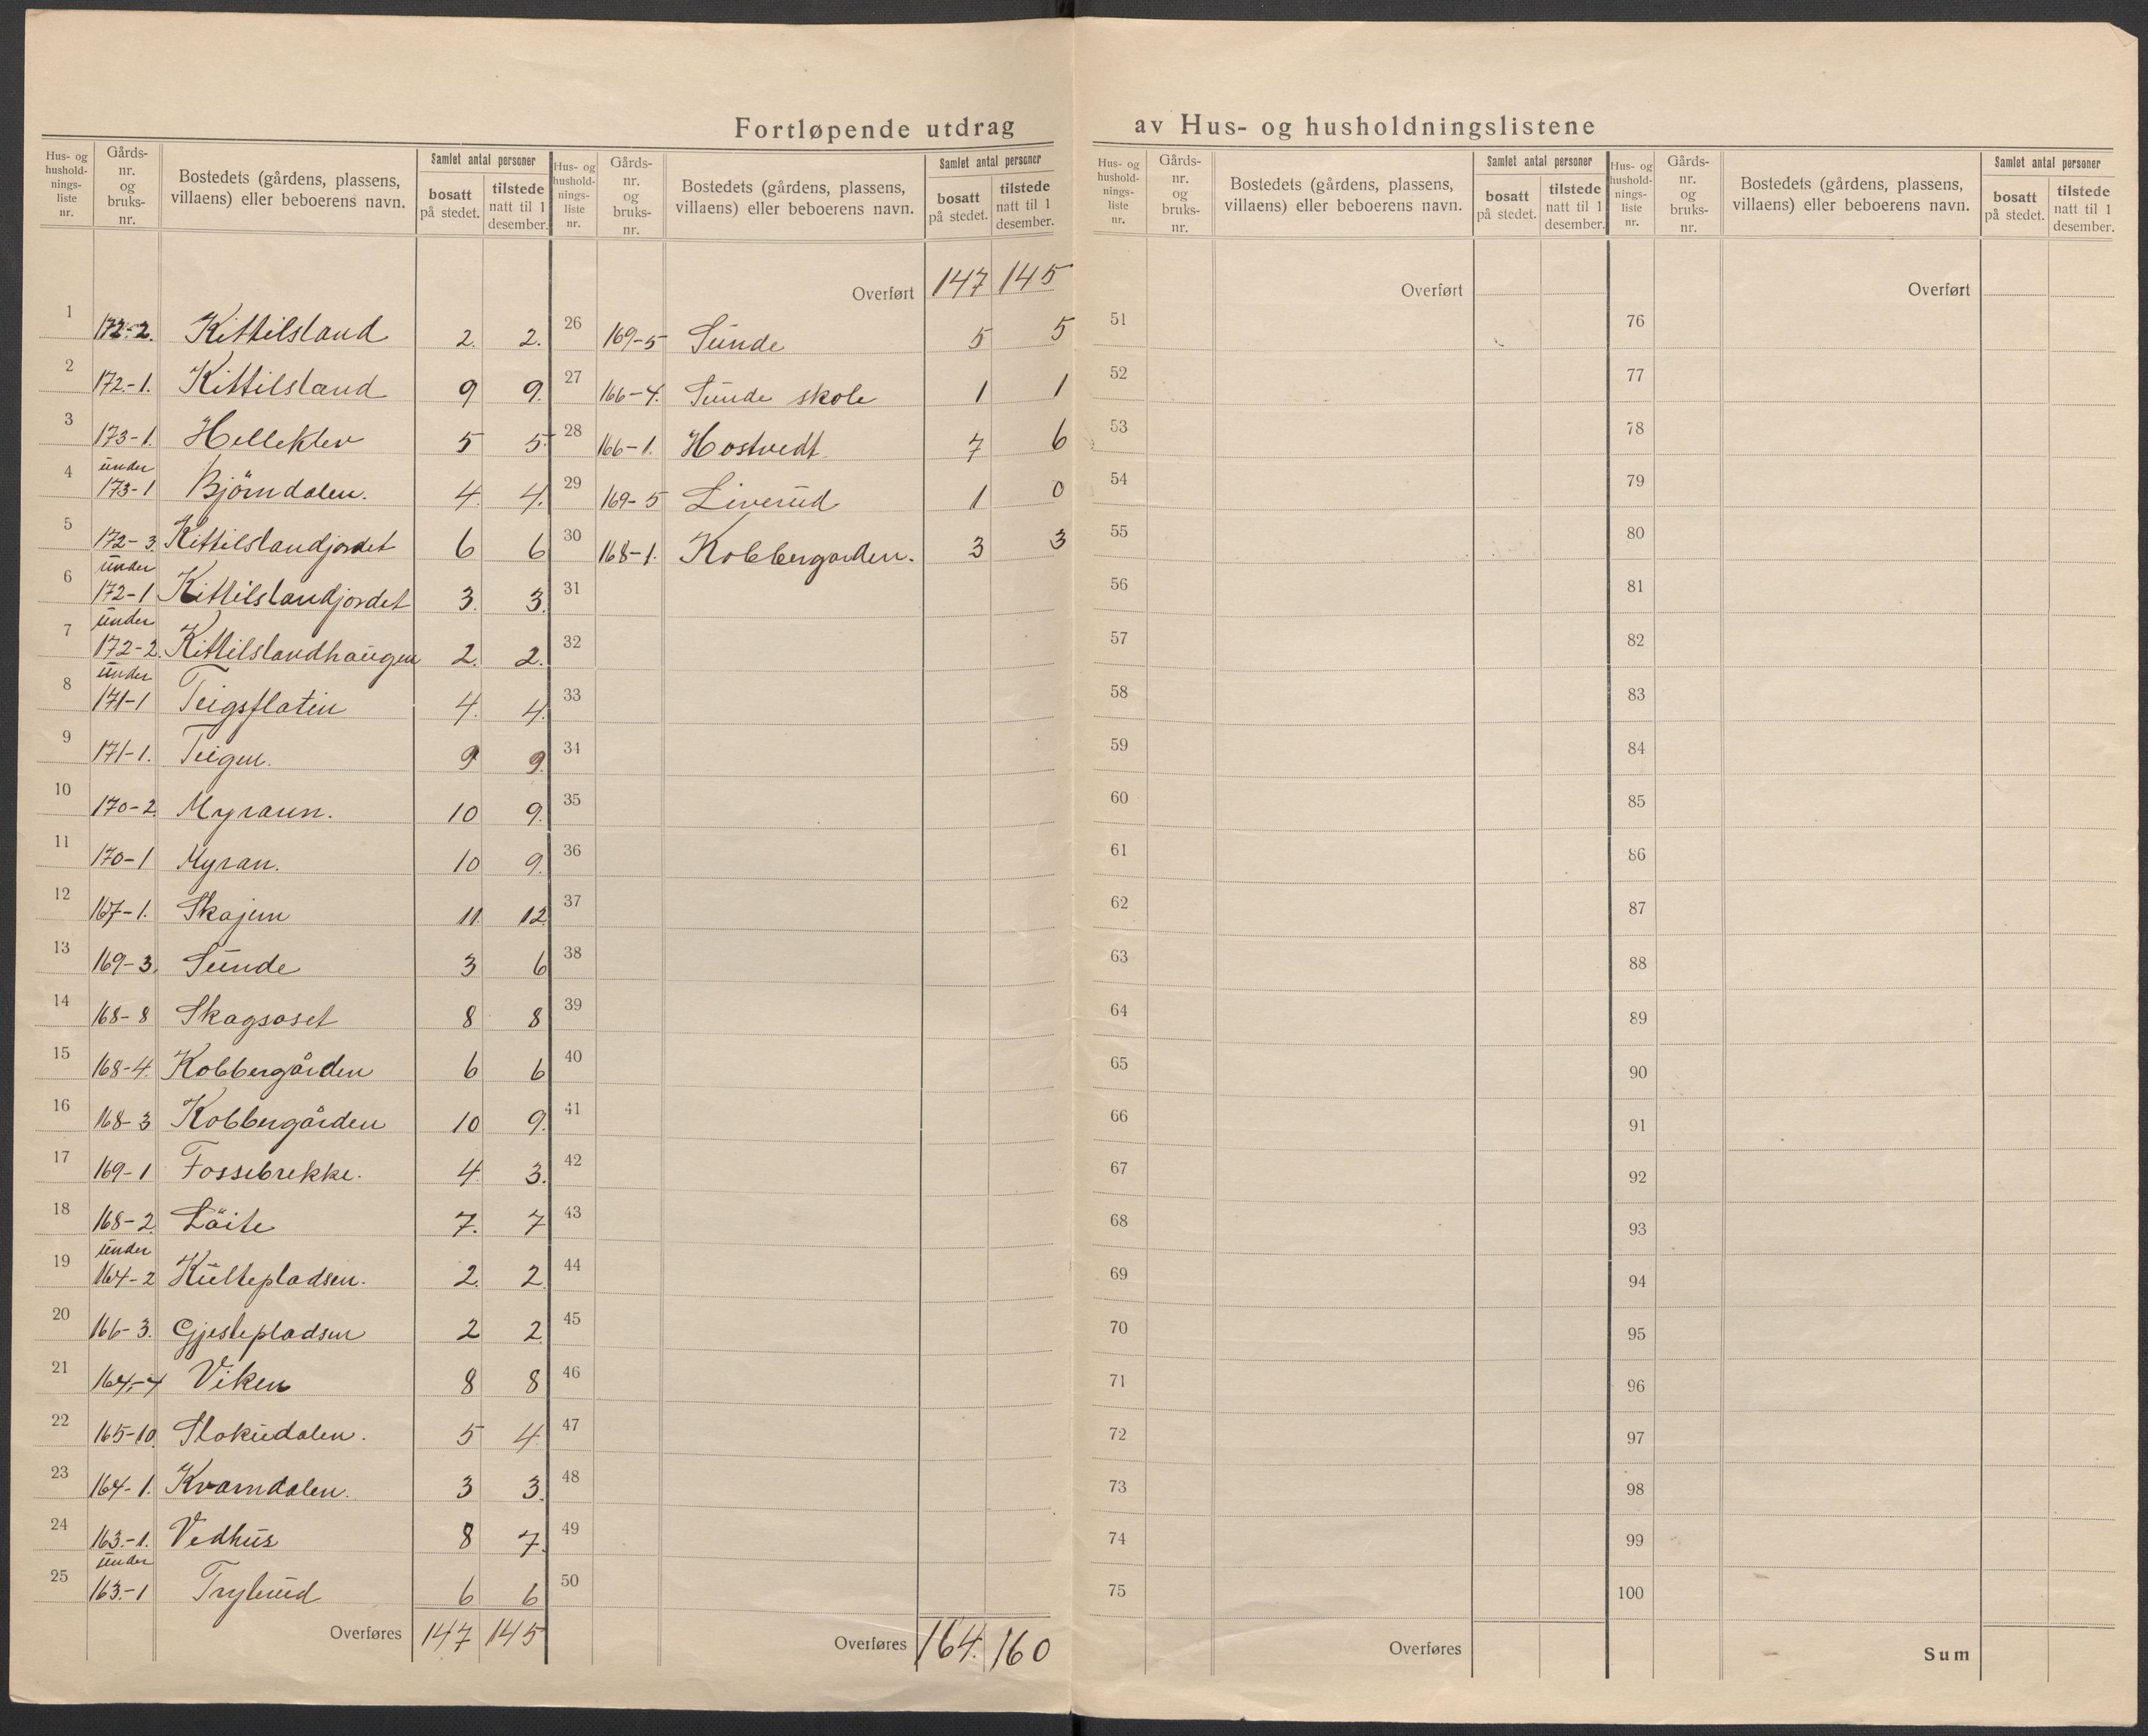 Fortløpende utdrag av Hus- og husholdningslistene
Hus- og hushold-nings-liste nr. Gårds-nr. og bruks-nr. Bostedets (gårdens, plassens, villaens) eller beboerens navn. Samlet antal personer bosatt på stedet. tilstede natt til 1 desember.
1 172-2. Kittilsland 2. 2.
2 172-1. Kittilsland 9 9.
3 173-1. Helleklev 5 5
4 under 173-1 Björndalen. 4. 4.
5 172-3. Kittilslandjordet 6 6
6 under 172-1 Kittilslandjordet 3. 3.
7 under 172-2. Kittilslandhaugen 2. 2.
8 under 171-1 Teigsflatin 4. 4.
9 171-1. Teigen. 9 9.
10 170-2. Myraun. 10 9.
11 170-1 Myran. 10 9.
12 167-1. Skajem 11. 12
13 169-3. Sunde 3 6
14 168-8 Skagsaset 8 8
15 168-4. Kobbergården 6 6
16 168-3 Kobbergården 10 9.
17 169-1 Fossebrekke. 4. 3.
18 168-2. Löite 7. 7
19 under 164-2 Kultepladsen. 2. 2
20 166-3. Gjestepladsen 2 2
21 164-4 Viken 8 8
22 165-10. Slokudalen. 5 4
23 164-1. Kvamdalen. 3 3.
24 163-1. Vedhus 8 7.
25 under 163-1 Trylerud 6 6
Overføres 147 145
Hus- og hushold-nings-liste nr. Gårds-nr. og bruks-nr. Bostedets (gårdens, plassens, villaens) eller beboerens navn. Samlet antal personer bosatt på stedet. tilstede natt til 1 desember.
Overført 147 145
26 169-5 Sunde 5 5
27 166-4. Sunde skole 1 1
28 166-1. Hostvedt 7 6
29 169-5 Liverud 1 0
30 168-1. Kobbergarden. 3 3
31
32
33
34
35
36
37
38
39
40
41
42
43
44
45
46
47
48
49
50
Overføres 164. 160
Hus- og hushold-nings-liste nr. Gårds-nr. og bruks-nr. Bostedets (gårdens, plassens, villaens) eller beboerens navn. Samlet antal personer bosatt på stedet. tilstede natt til 1 desember.
Overført
51
52
53
54
55
56
57
58
59
60
61
62
63
64
65
66
67
68
69
70
71
72
73
74
75
Overføres
Hus- og hushold-nings-liste nr. Gårds-nr. og bruks-nr. Bostedets (gårdens, plassens, villaens) eller beboerens navn. Samlet antal personer bosatt på stedet. tilstede natt til 1 desember.
Overført
76
77
78
79
80
81
82
83
84
85
86
87
88
89
90
91
92
93
94
95
96
97
98
99
100
Sum